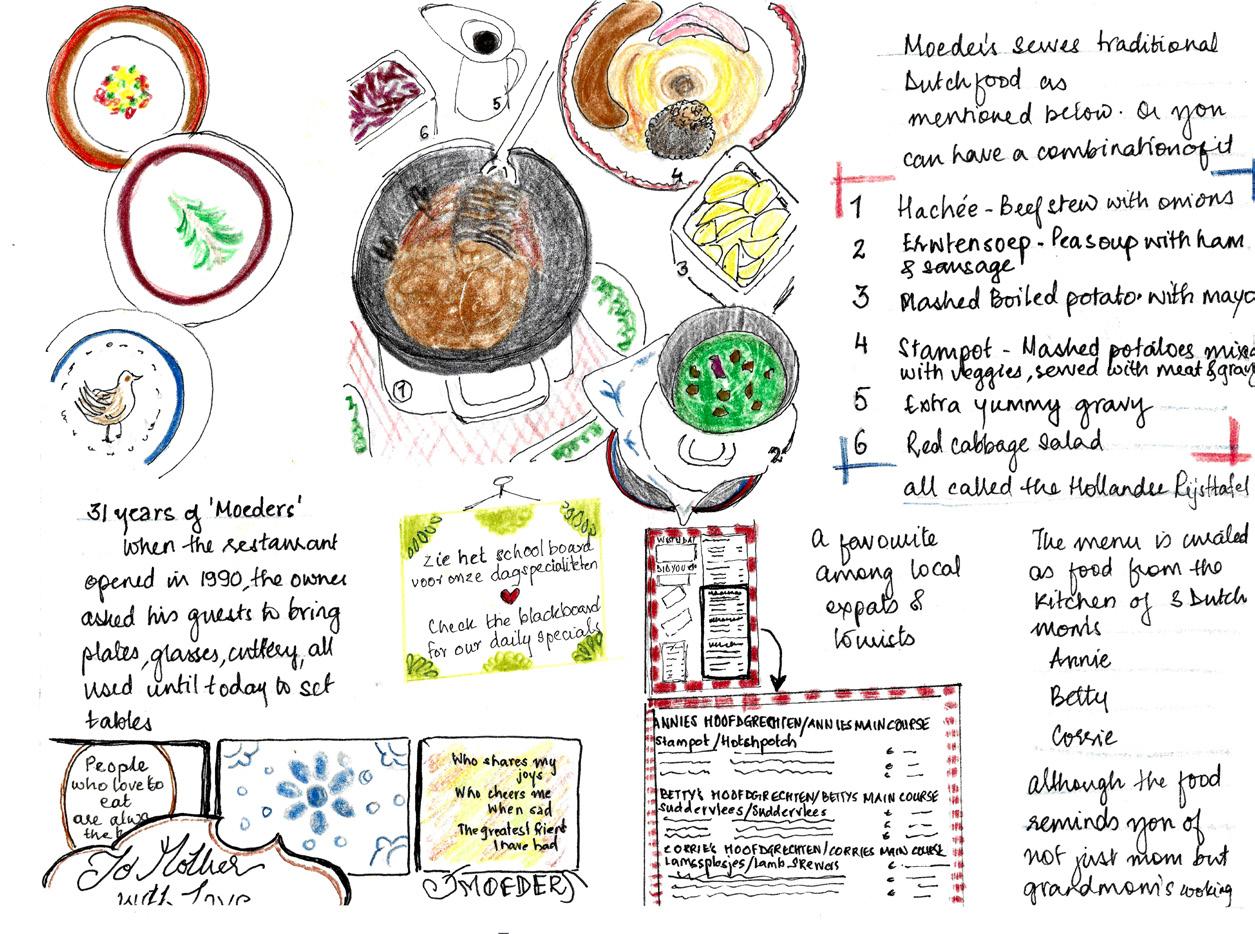 Moeder's serves traditional
Dutch food as
mentioned below. Or you
can have a combination of it
1 Hachée - Beef stew with onions
2 Erwtensoep - Pea soup with ham
& sausage
3 Mashed Boiled potato. with mayo
4 Stampot - Mashed potatoes mixed
with veggies, served with meat & gravy
5 Extra yummy gravy
6 Red cabbage salad
all called the Hollandse Rijsttafel
5
6
4
3
1
2
31 years of 'Moeders'
when the restaurant
opened in 1990, the owner
asked his guests to bring
plates, glasses, cutlery, all
used until today to set
tables
zie het school board
voor onze dagspecialiteiten
Check the blackboard
for our daily specials
A favourite
among local
expats &
tourists
The menu is curated
as food from the
kitchen of 3 Dutch
mom's
Annie
Betty
Corrie
although the food
reminds you of
not just mom but
grandmom's cooking
DID YOU
ANNIES HOOFDGRECHTEN/ANNIES MAIN COURSE
Stampot/Hotshpotch
BETTY'S HOOFDGRECHTEN/BETTYS MAIN COURSE
Suddervlees/Suddervlees
CORRIE'S HOOFDGRECHTEN/CORRIES MAIN COURSE
Lamsspiesjes/lamb skewers
People
who love to
eat
are alwa
the b
To Mother
with Love
Who shares my
joys
Who cheers me
when sad
The greatest frient
I have had
MOEDER